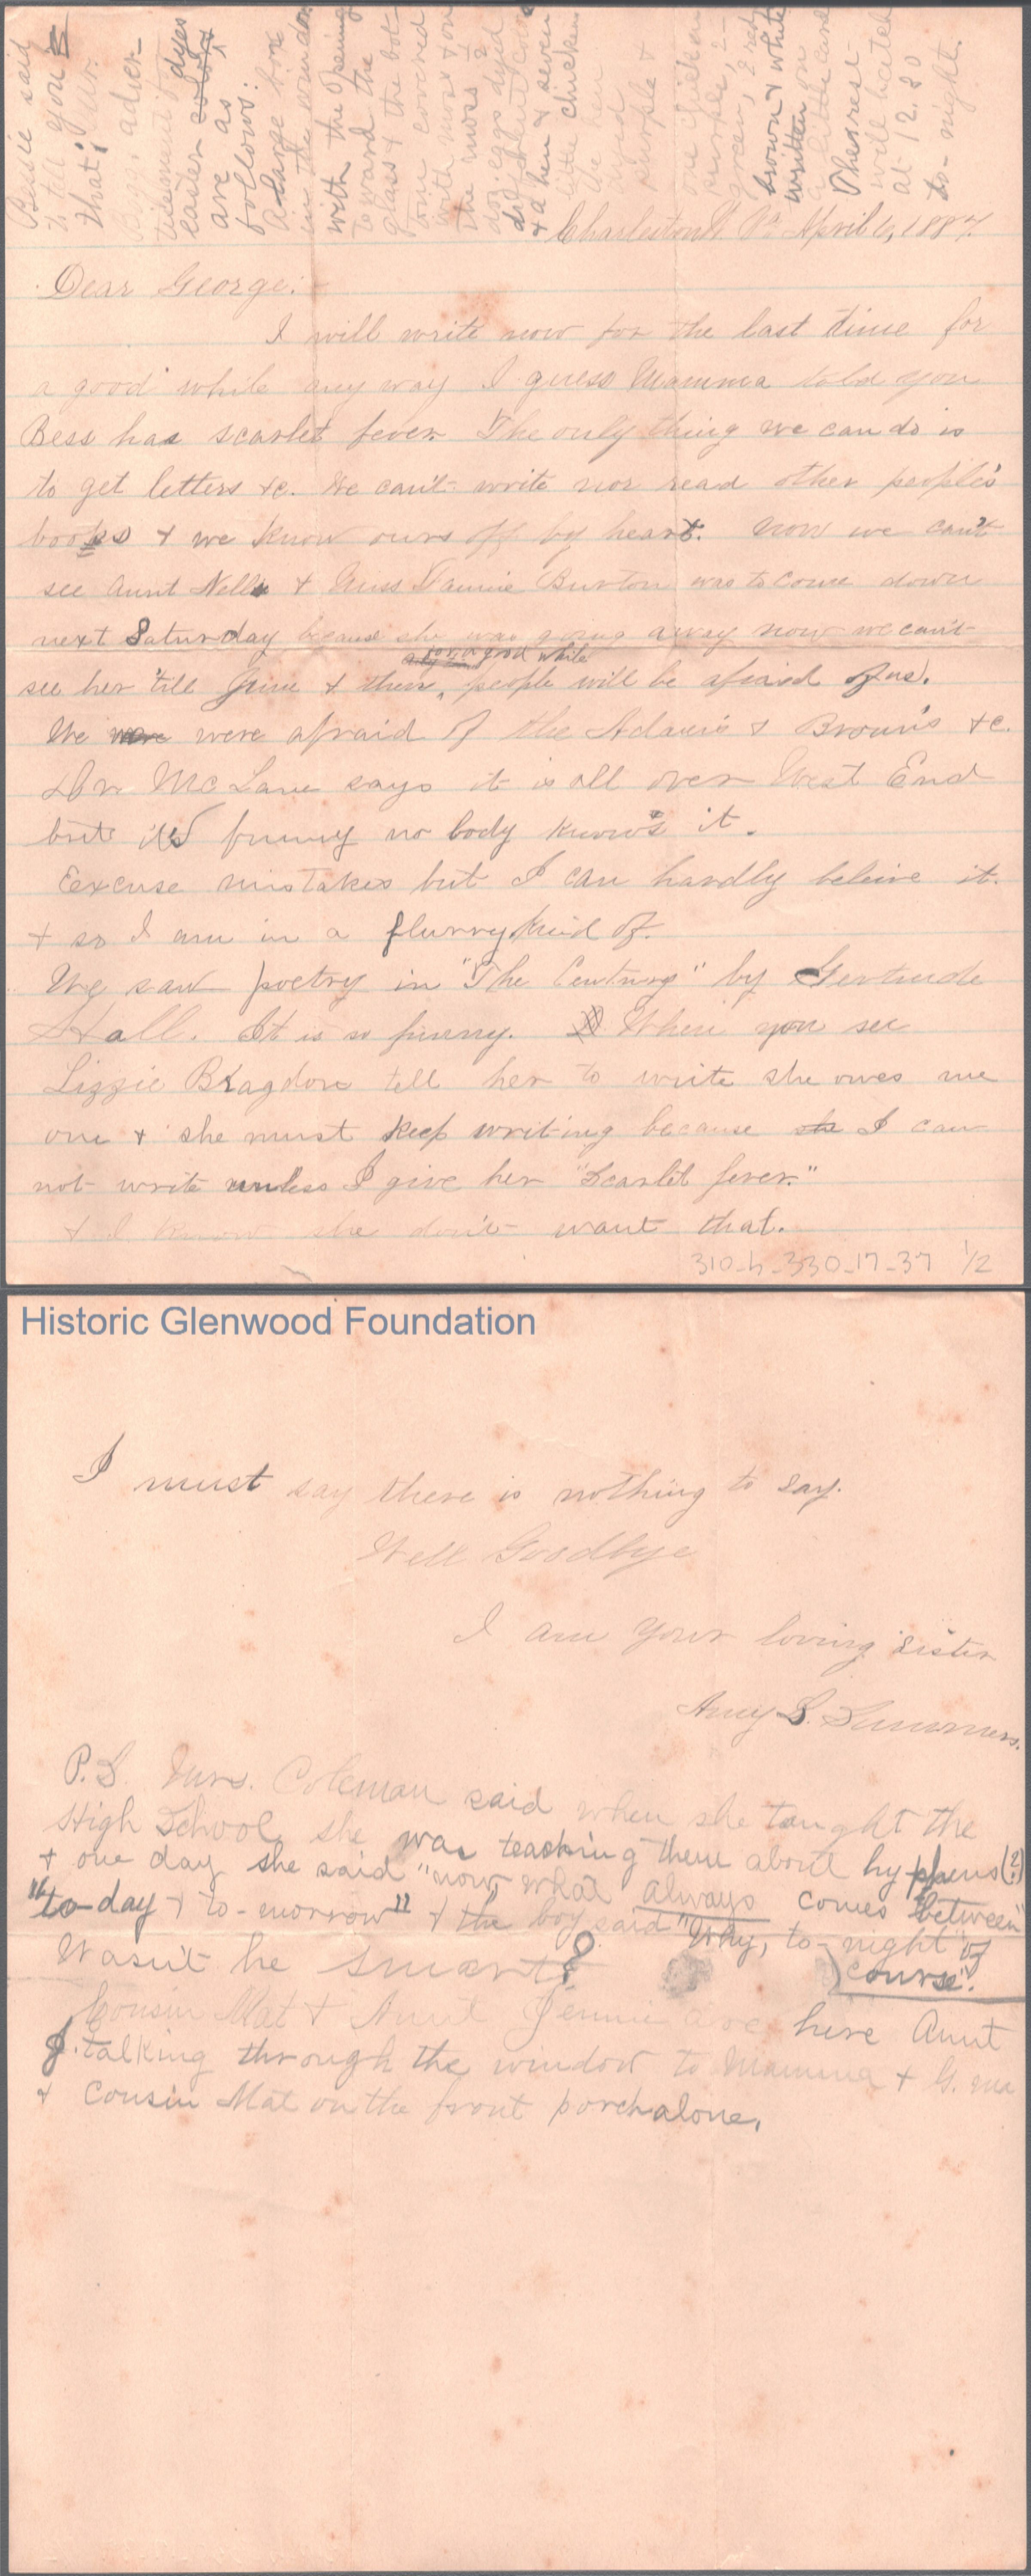 Bessie said
to tell you
that; Mr.
adver-
tisement dyes
easter
are as
follows:
A large box
in the window
with the opening
toward the
glass & the bot-
tom covered
with moss & on
the moss 1/2
doz. eggs dyed
different
& a hen & seven
little chickens
the hen
dyed
purple &
one chicken
purple, 2
green, 2 red
brown & white
written on
a little card
"The rest
will hatch
at 12.30
to-night.
Charleston W. Va April 6, 1887.
Dear George:-
I will write now for the last time for
a good while any way I guess Mamma told you
Bess has scarlet fever. The only thing we can do is
to get letters &c. We can't write nor read other people's
books & we know ours off by heart. Now we can't
see Aunt Nell & Miss Fannie Burton was to come down
next Saturday because she was going away now we can't
for a good while
see her 'till June & then, people will be afraid of us.
We were were afraid of the Adam's & Brown's &c.
& Dr. McLane says it is all over West End
but it's funny no body know's it.
Excuse mistakes but I can hardly beleive it.
& so I am in a flurry kind of.
We saw poetry in "The Century" by Gertrude
Hall. It is so funny. When you see
Lizzie Bragdon tell her to write she owes me
one & she must keep writing because she I can
not write unless I give her "Scarlet fever."
& I know she don't want that.
310-h-330-17-37 1/2
Historic Glenwood Foundation
I must say there is nothing to say.
Well Goodbye
I am your loving sister
Amy S. Summers.
P.S. Mrs. Coleman said when she taught the
High School she was teaching them about hyphens (?)
& one day she said "now what always comes between"
"to-day & to-morrow" & the boy said "Why, to-night" of
course".
Wasn't he smart?
Cousin Mat & Aunt Jennie are here Aunt
J. talking through the window to Mamma & G. ma
& Cousin Mat on the front porch alone.